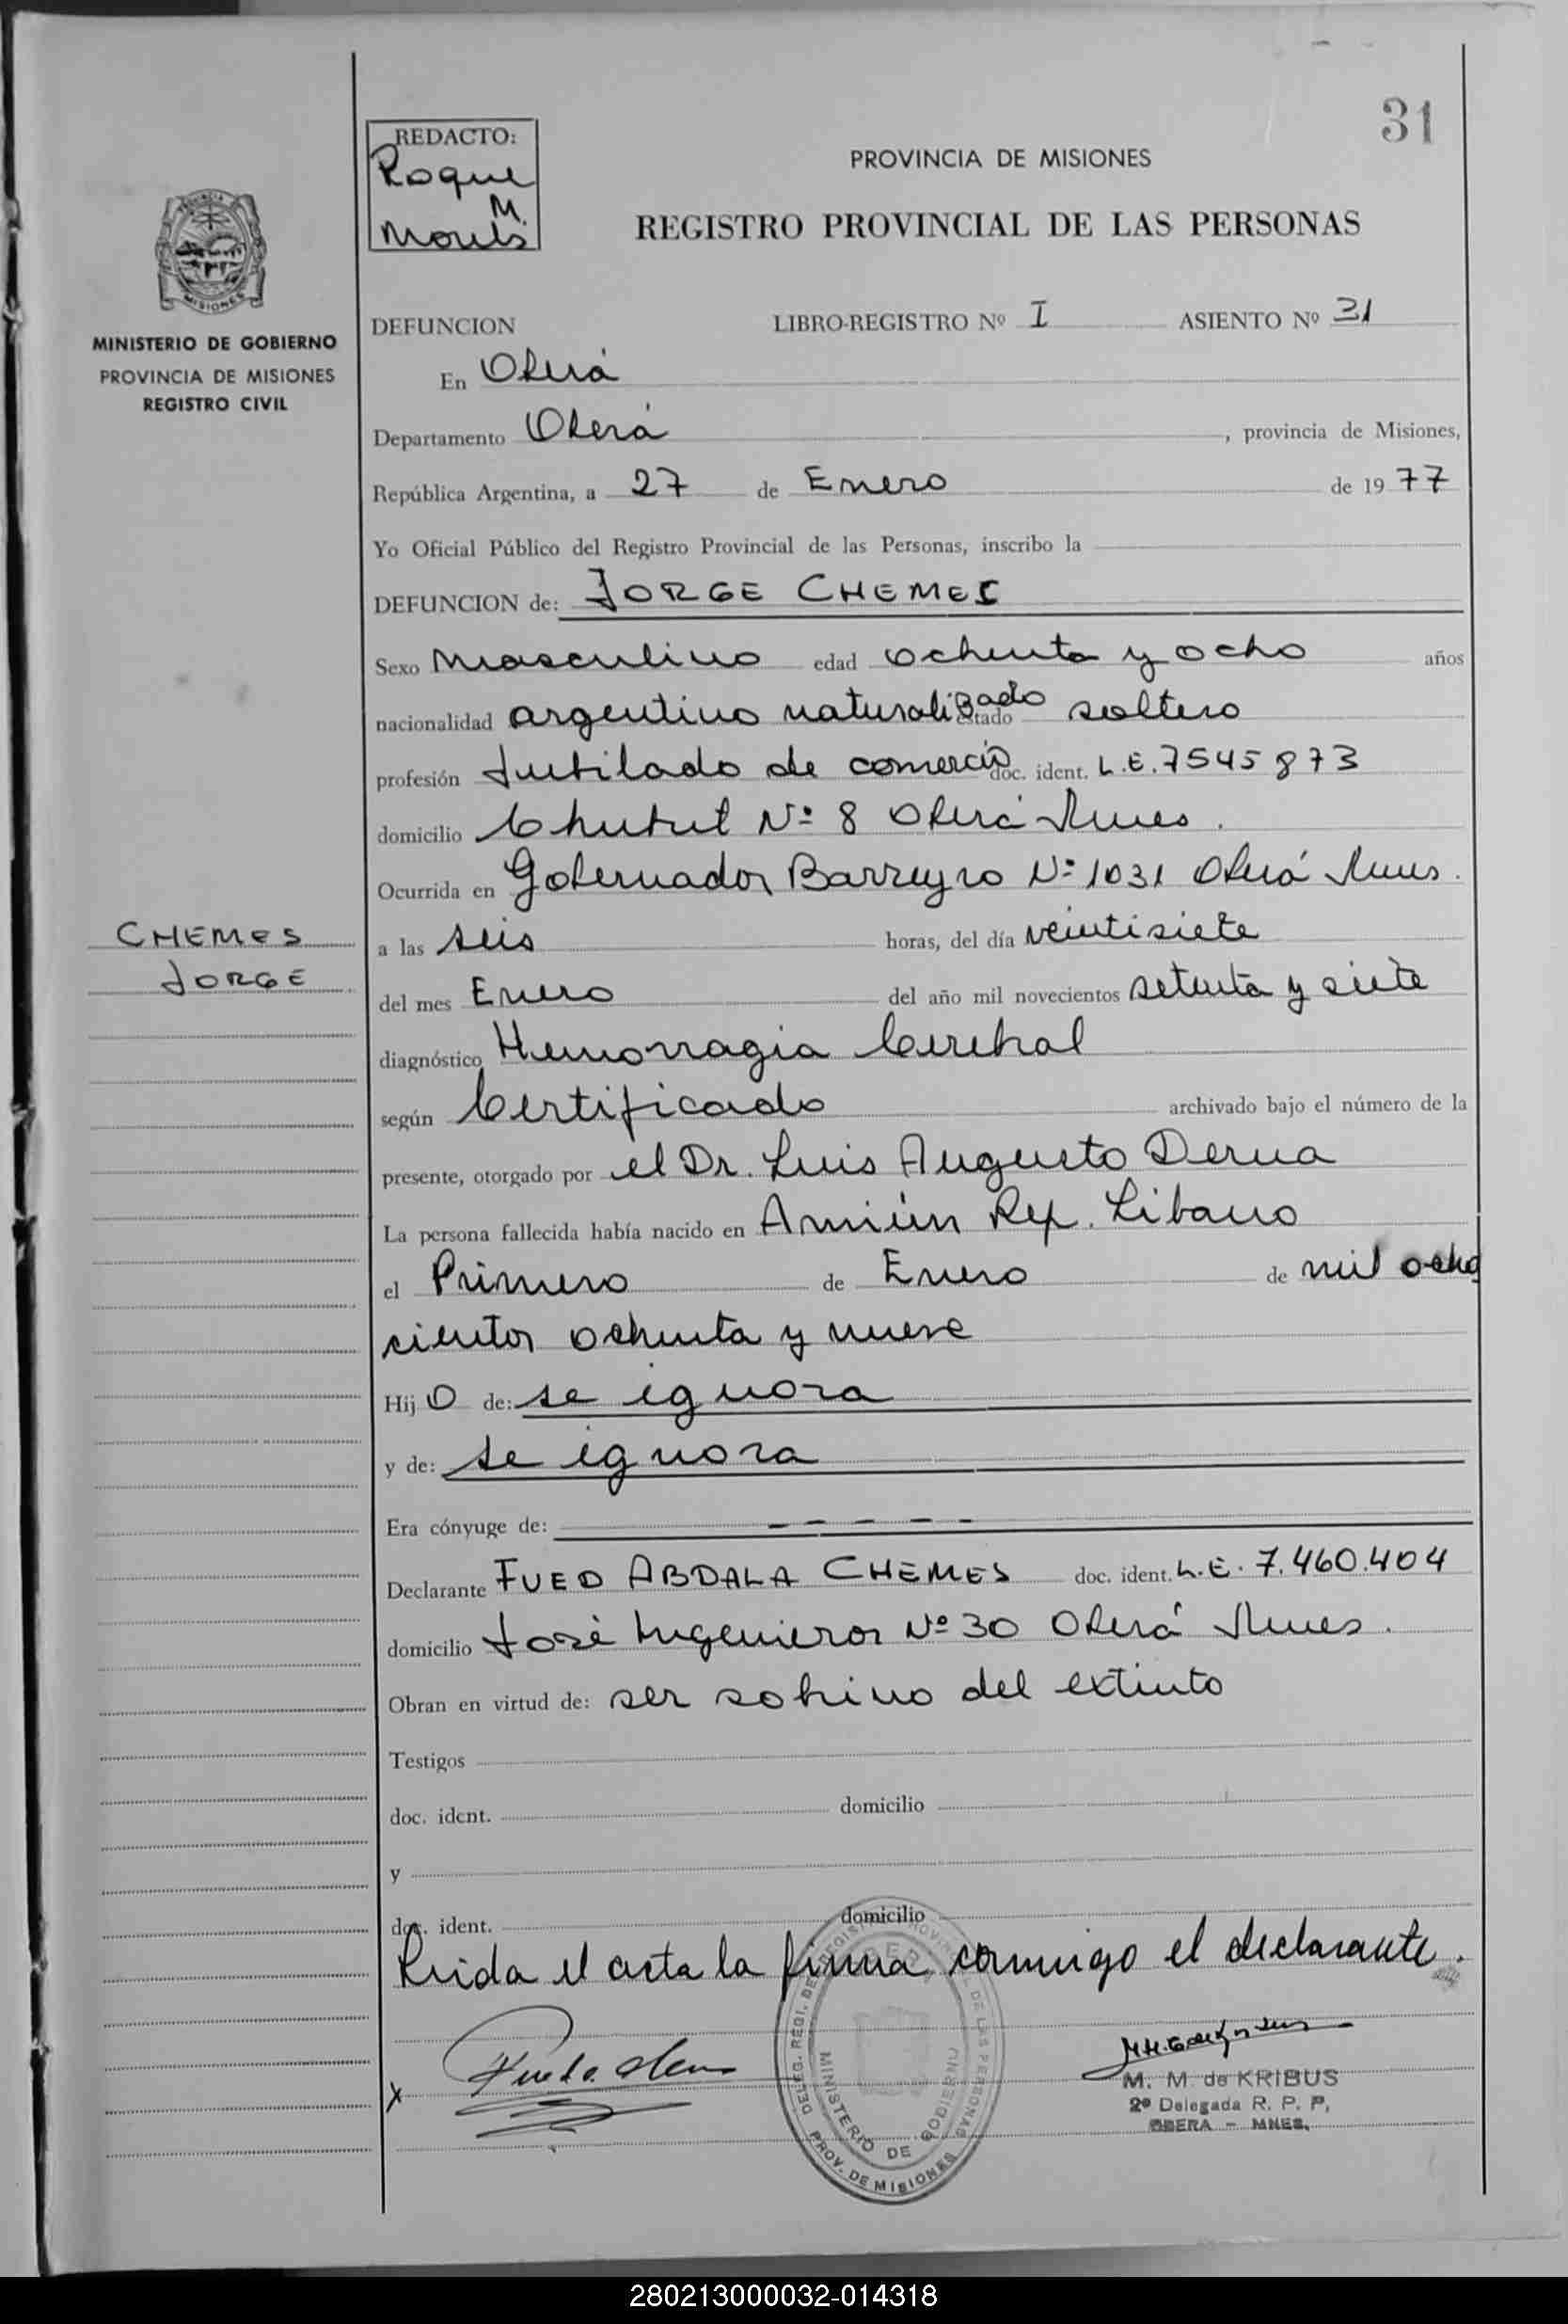 31
REDACTO:
Roque
M.
PROVINCIA DE MISIONES
REGISTRO PROVINCIAL DE LAS PERSONAS
MINISTERIO DE GOBIERNO
PROVINCIA DE MISIONES
REGISTRO CIVIL
DEFUNCION LIBRO-REGISTRO Nº I ASIENTO Nº 31
En Oberá
Departamento Oberá, provincia de Misiones,
República Argentina, a 27 de Enero de 1977
Yo Oficial Público del Registro Provincial de las Personas, inscribo la
DEFUNCION de: JORGE CHEMES
Sexo Masculino edad ochenta y ocho años
nacionalidad argentino naturalizado estado soltero
profesión Jubilado de comercio doc. ident. L.E. 7545873
domicilio Chubut Nº 8 Oberá Mnes.
Ocurrida en Gobernador Barreyro Nº 1031 Oberá Mnes.
CHEMES
JORGE
a las seis horas, del día veintisiete
del mes Enero del año mil novecientos setenta y siete
diagnóstico Hemorragia Cerebral
según Certificado archivado bajo el número de la
presente, otorgado por el Dr. Luis Augusto Derna
La persona fallecida había nacido en Amiún Rep. Líbano
el Primero de Enero de mil ocho
cientos ochenta y nueve
Hijo de: se ignora
y de: se ignora
Era cónyuge de: - - - - -
Declarante FUED ABDALA CHEMES doc. ident. L.E. 7.460.404
domicilio José Ingenieros Nº 30 Oberá Mnes.
Obran en virtud de: ser sobrino del extinto
Testigos
doc. ident. domicilio
y
doc. ident. domicilio
Leida el acta la firma conmigo el declarante.
X
DELEG. REGI. DEL REGISTRO PROVINCIAL DE LAS PERSONAS
OBERA
MINISTERIO DE GOBIERNO
PROV. DE MISIONES
M. M. de KRIBUS
2º Delegada R. P. P,
OBERA - MNES.
280213000032-014318